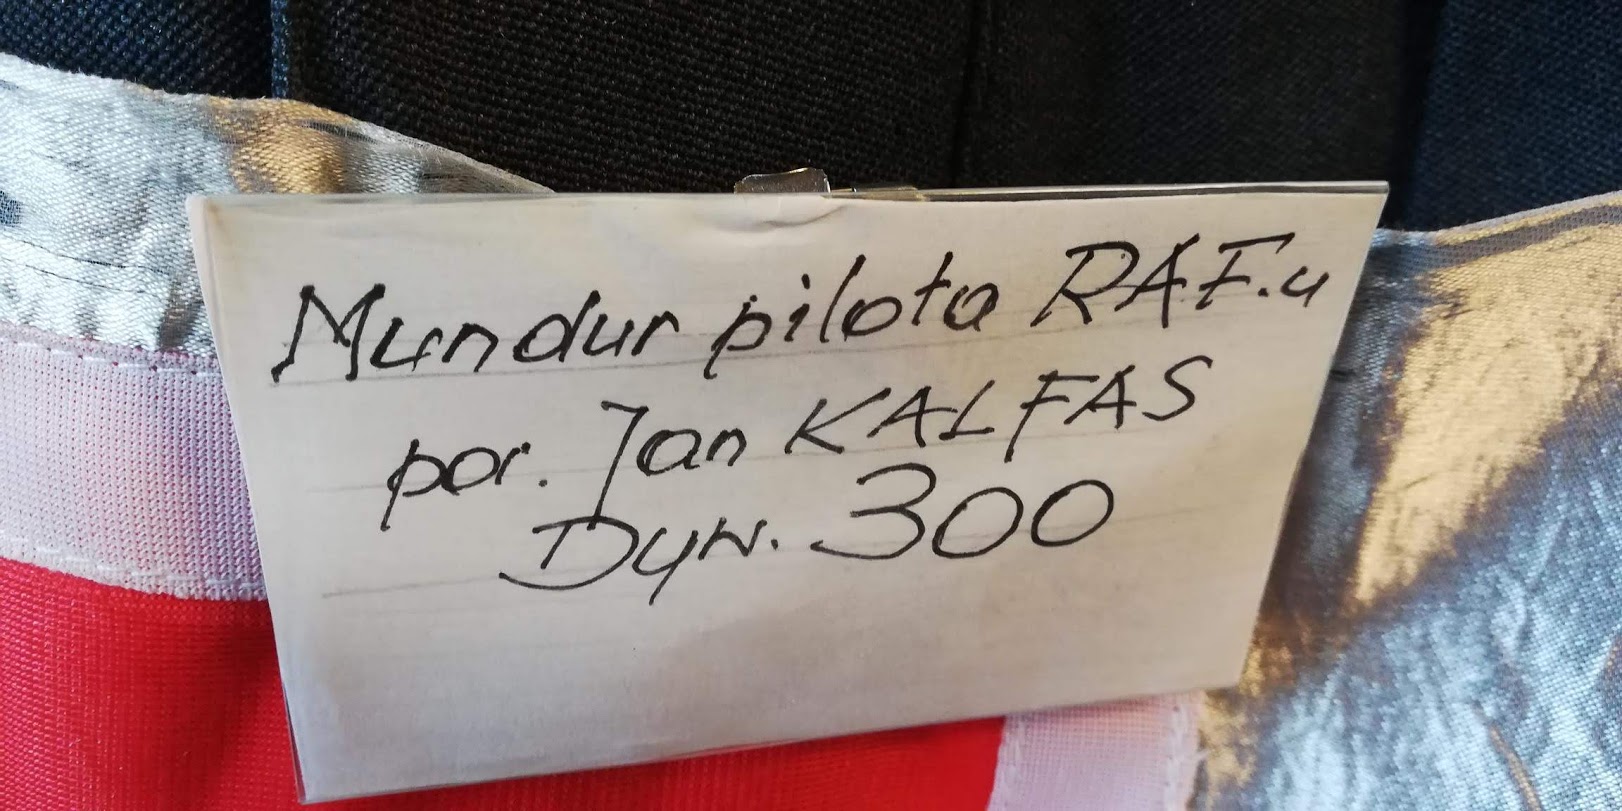 Mundur pilota RAF.u
por. Jan KALFAS
Dyw. 300